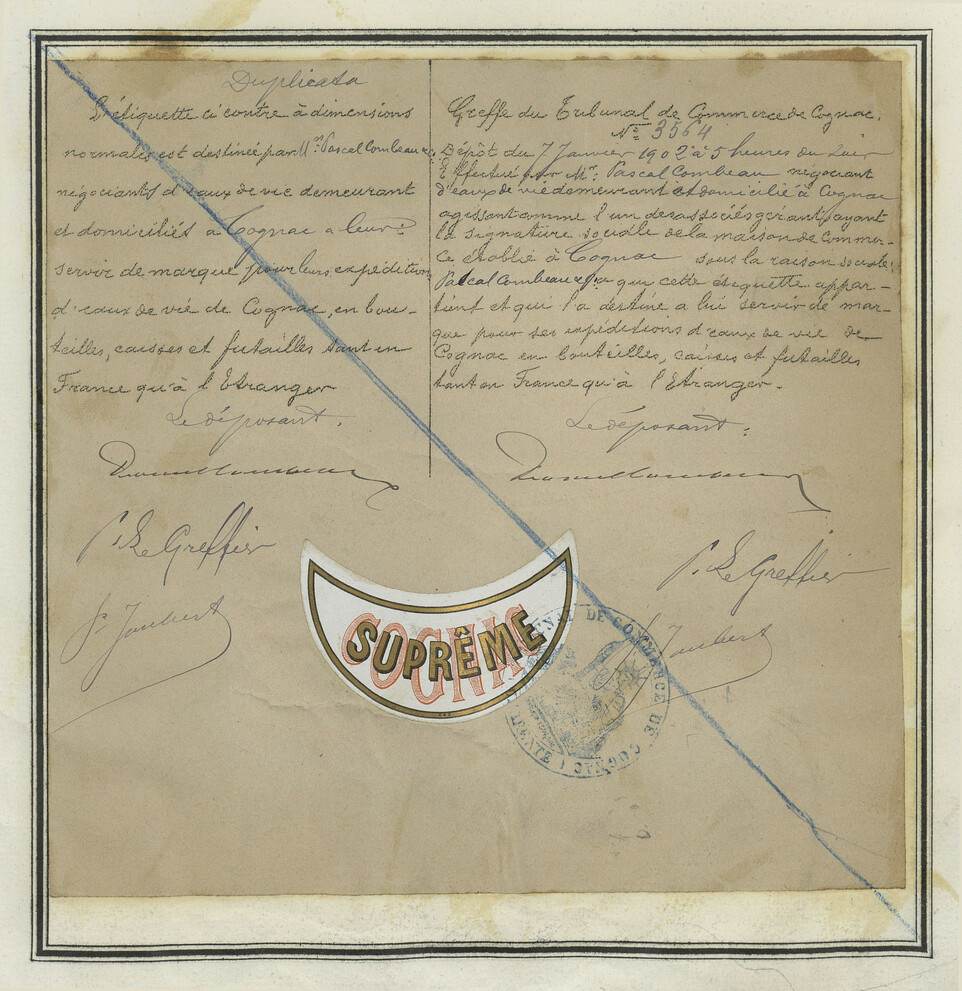 Duplicata
L'étiquette ci contre à dimensions
normales est destinée par M.rs Pascal Combeau &
négociants d'eaux de vie demeurant
et domiciliés à Cognac a leur
servir de marque pour leurs expéditions
d'eaux de vie de Cognac, en bou-
teilles, caisses et futailles tant en
France qu'à l'Etranger
Le déposant.
P. Le Greffier
Joubert
Greffe du Tribunal de Commerce de Cognac.
N° 3564
Dépôt du 7 Janvier 1902 à 5 heures du soir
Effectué par Mr. Pascal Combeau négociant
d'eaux de vie demeurant et domicilié à Cognac
agissant comme l'un des associés gérants ayant
la signature sociale de la maison de Commer-
ce établie à Cognac sous la raison sociale
Pascal Combeau & que cette étiquette appar-
tient et qui l'a destine a lui servir de mar-
que pour ses expéditions d'eaux de vie de
Cognac en bouteilles, caisses et futailles
tant en France qu'à l'Etranger.
Le déposant:
P. Le Greffier
Joubert
COGNAC
SUPRÊME
TRIBUNAL DE COMMERCE DE COGNAC